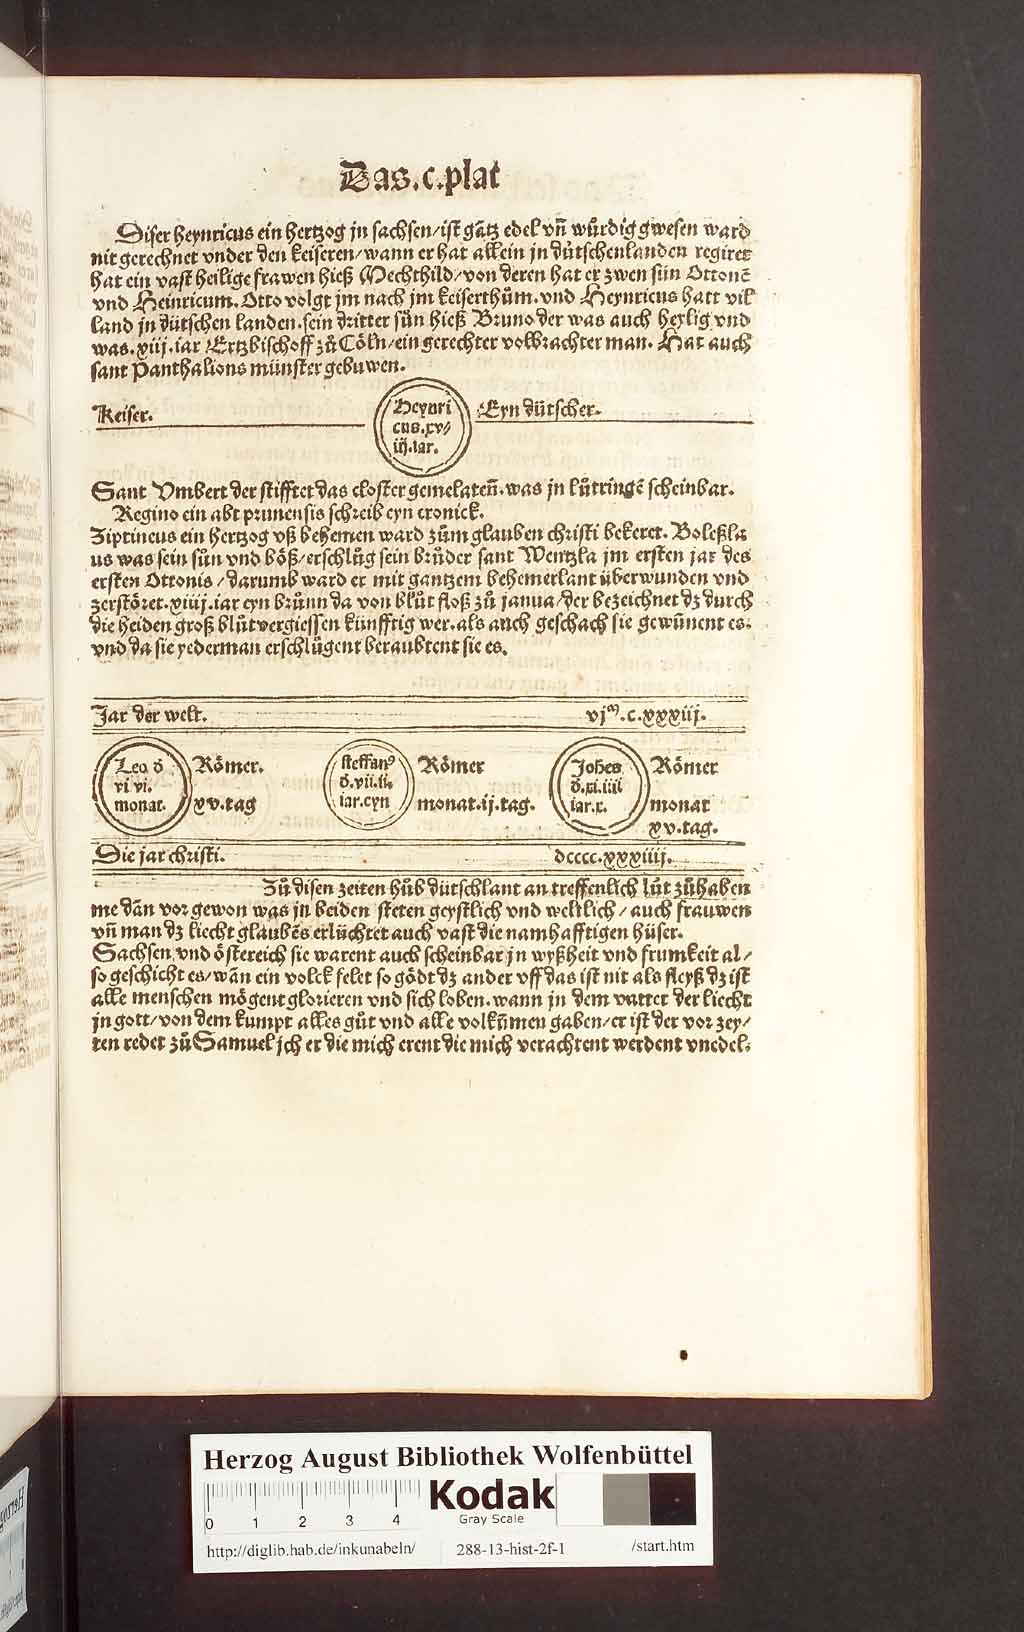 Das.c.plat
Diser heynricus ein hertzog jn sachsen/ist gātz edel vñ wůrdig gwesen ward
nit gerechnet vnder den keiseren/wann er hat allein jn důtschenlanden regiret
hat ein vast heilige frawen hieß Mechthild/von deren hat er zwen sün Ottonē
vnd Heinricum. Otto volgt jm nach jm keiserthům.vnd Heynricus hatt vil
land jn dütschen landen.sein dritter sün hieß Bruno der was auch heylig vnd
was.xiij.iar Ertzbischoff zů Cöln/ein gerechter volbrachter man. Hat auch
sant Panthalions münster gebuwen.
Keiser.
Heynri
cus.xv/
iij.iar.
Eyn dütscher.
Sant Vmbert der stifftet das closter gemelateñ.was jn lůtringē scheinbar.
Regino ein abt prunensis schreib eyn cronick.
Ziptineus ein hertzog vß behemen ward zům glauben christi bekeret. Boleßla
us was sein sůn vnd böß/erschlůg sein brůder sant Wentzla jm ersten jar des
ersten Ottonis/darumb ward er mit gantzem behemerlant überwunden vnd
zerstöret.xiiij.iar eyn brůnn da von blůt floß zů janua/der bezeichnet dz durch
die heiden groß blůtvergiessen künfftig wer.als auch geschach sie gewūnent es.
vnd da sie yederman erschlůgent beraubtent sie es.
Jar der welt.
vjm.c.xxxiij.
Leo d
vi vi.
monat.
Römer.
xv.tag
steffanꝰ
d.vii.ii.
iar.eyn
Römer
monat.ij.tag.
Johes
d.xi.iiii
iar.x.
Römer
monat
xv.tag.
Die jar christi.
dcccc.xxxiiij.
Zů disen zeiten hůb dütschlant an treffenlich lůt zůhaben
me dān vor gewon was jn beiden steten geystlich vnd weltlich/auch frauwen
vñ man dz liecht glaubēs erlüchtet auch vast die namhafftigen hüser.
Sachsen vnd östereich sie warent auch scheinbar jn wyßheit vnd frumkeit al/
so geschicht es/wān ein volck felet so gödt dz ander vff das ist nit als fleyß dz ist
alle menschen mögent glorieren vnd sich loben.wann jn dem vatter der liecht
jn gott/von dem kumpt alles gůt vnd alle volkūmen gaben/er ist der vor zey/
ten redet zů Samuel jch er die mich erent die mich verachtent werdent vnedel.
Herzog August Bibliothek Wolfenbüttel
0 1 2 3 4
Kodak
Gray Scale
http://diglib.hab.de/inkunabeln/
288-13-hist-2f-1
/start.htm